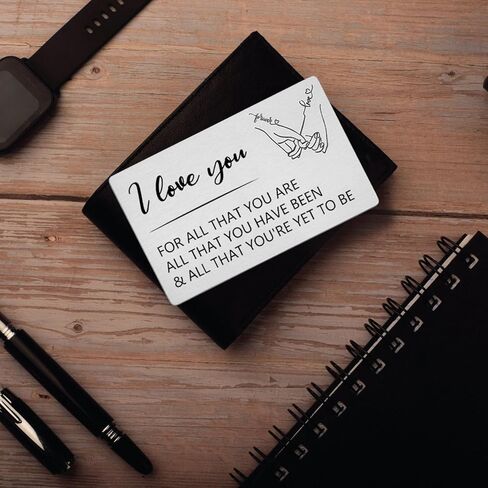 forever
love
I love you
FOR ALL THAT YOU ARE
ALL THAT YOU HAVE BEEN
& ALL THAT YOU'RE YET TO BE